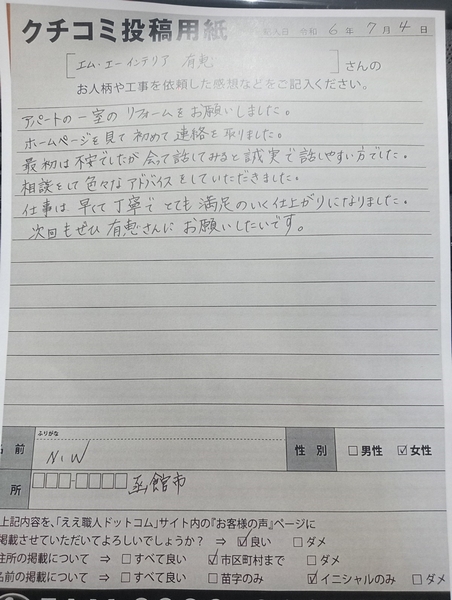 クチコミ投稿用紙
記入日 令和 6 年 7 月 4 日
[エム・エーインテリア 有恵 ] さんの
お人柄や工事を依頼した感想などをご記入ください。
アパートの一室のリフォームをお願いしました。
ホームページを見て初めて連絡を取りました。
最初は不安でしたが会って話してみると誠実で話しやすい方でした。
相談をして色々なアドバイスをしていただきました。
仕事は早くて丁寧でとても満足のいく仕上がりになりました。
次回もぜひ有恵さんにお願いしたいです。
ふりがな
名 前 N.W 性 別 □男性 ☑女性
所 □□□-□□□□ 函館市
上記内容を、「ええ職人ドットコム」サイト内の『お客様の声』ページに
掲載させていただいてよろしいでしょうか? ⇒ ☑良い □ダメ
住所の掲載について ⇒ □すべて良い ☑市区町村まで □ダメ
名前の掲載について ⇒ □すべて良い □苗字のみ ☑イニシャルのみ □ダメ